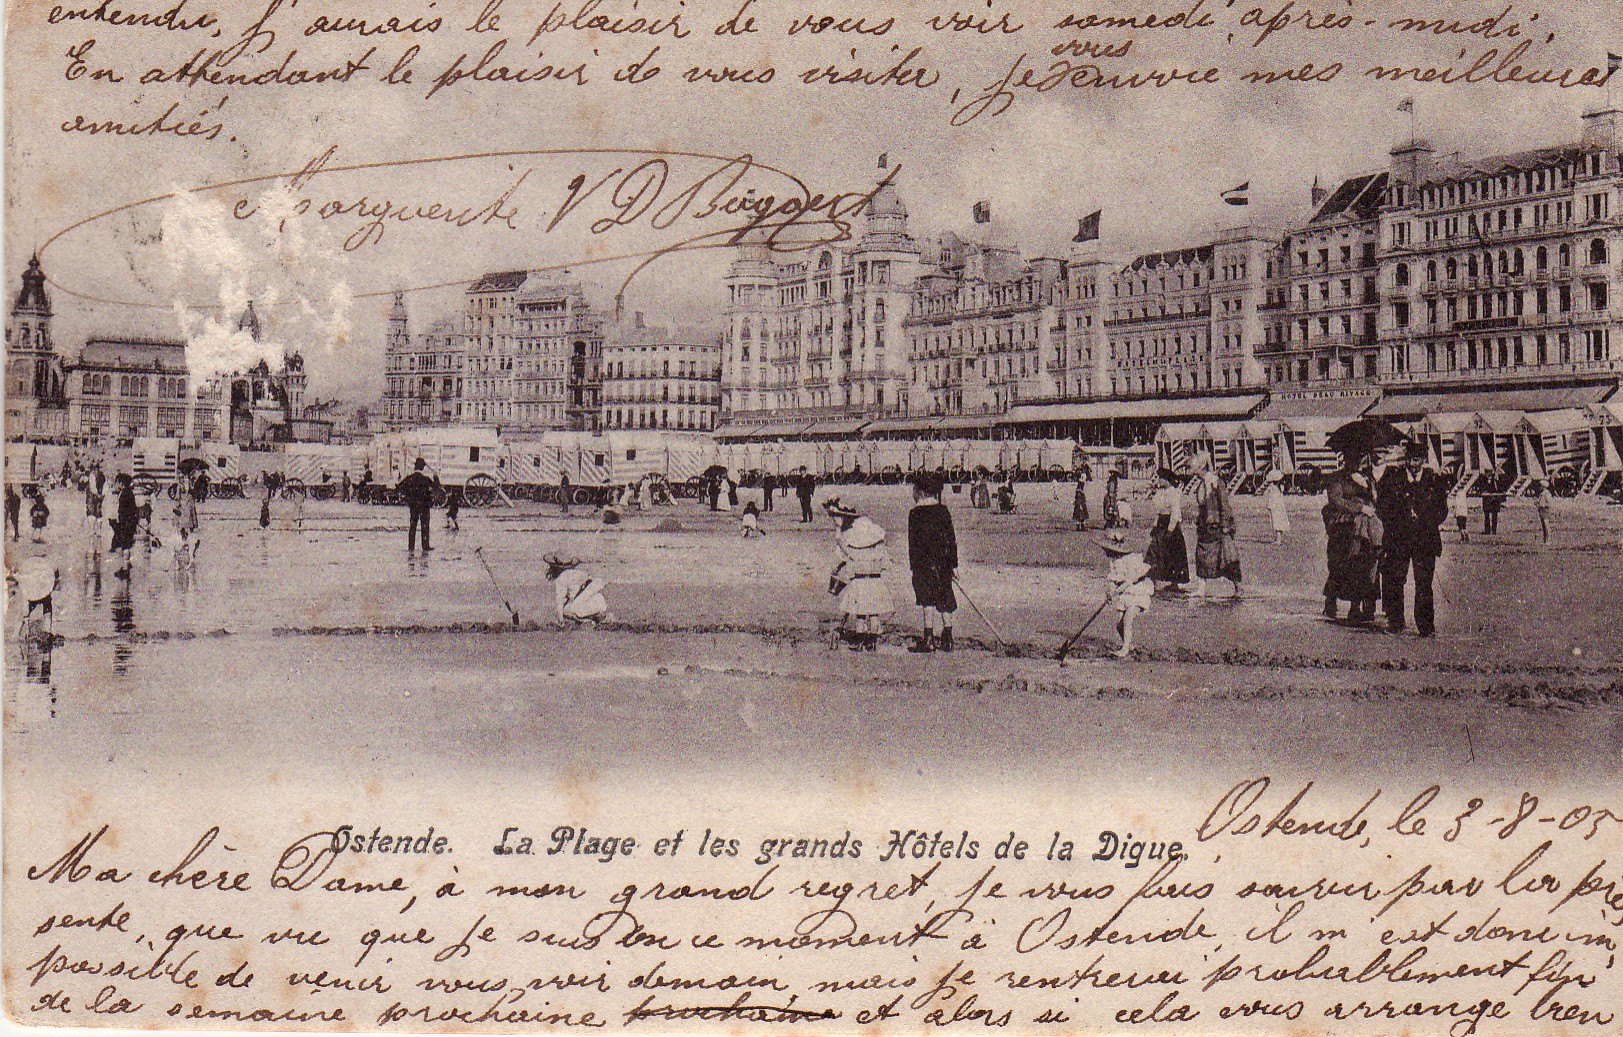 entendu, j'aurais le plaisir de vous voir samedi après-midi.
En attendant le plaisir de vous visiter, je vous envoie mes meilleures
amitiés.
Marguerite V D Bogaert
HOTEL BEAU RIVAGE
Ostende. La Plage et les grands Hôtels de la Digue.
Ostende, le 3-8-05
Ma chère Dame, à mon grand regret, je vous fais savoir par la pré
sente, que vu que je suis en ce moment à Ostende, il m'est donc im
possible de venir vous voir demain, mais je rentrerai probablement fin
de la semaine prochaine prochaine et alors si cela vous arrange bien